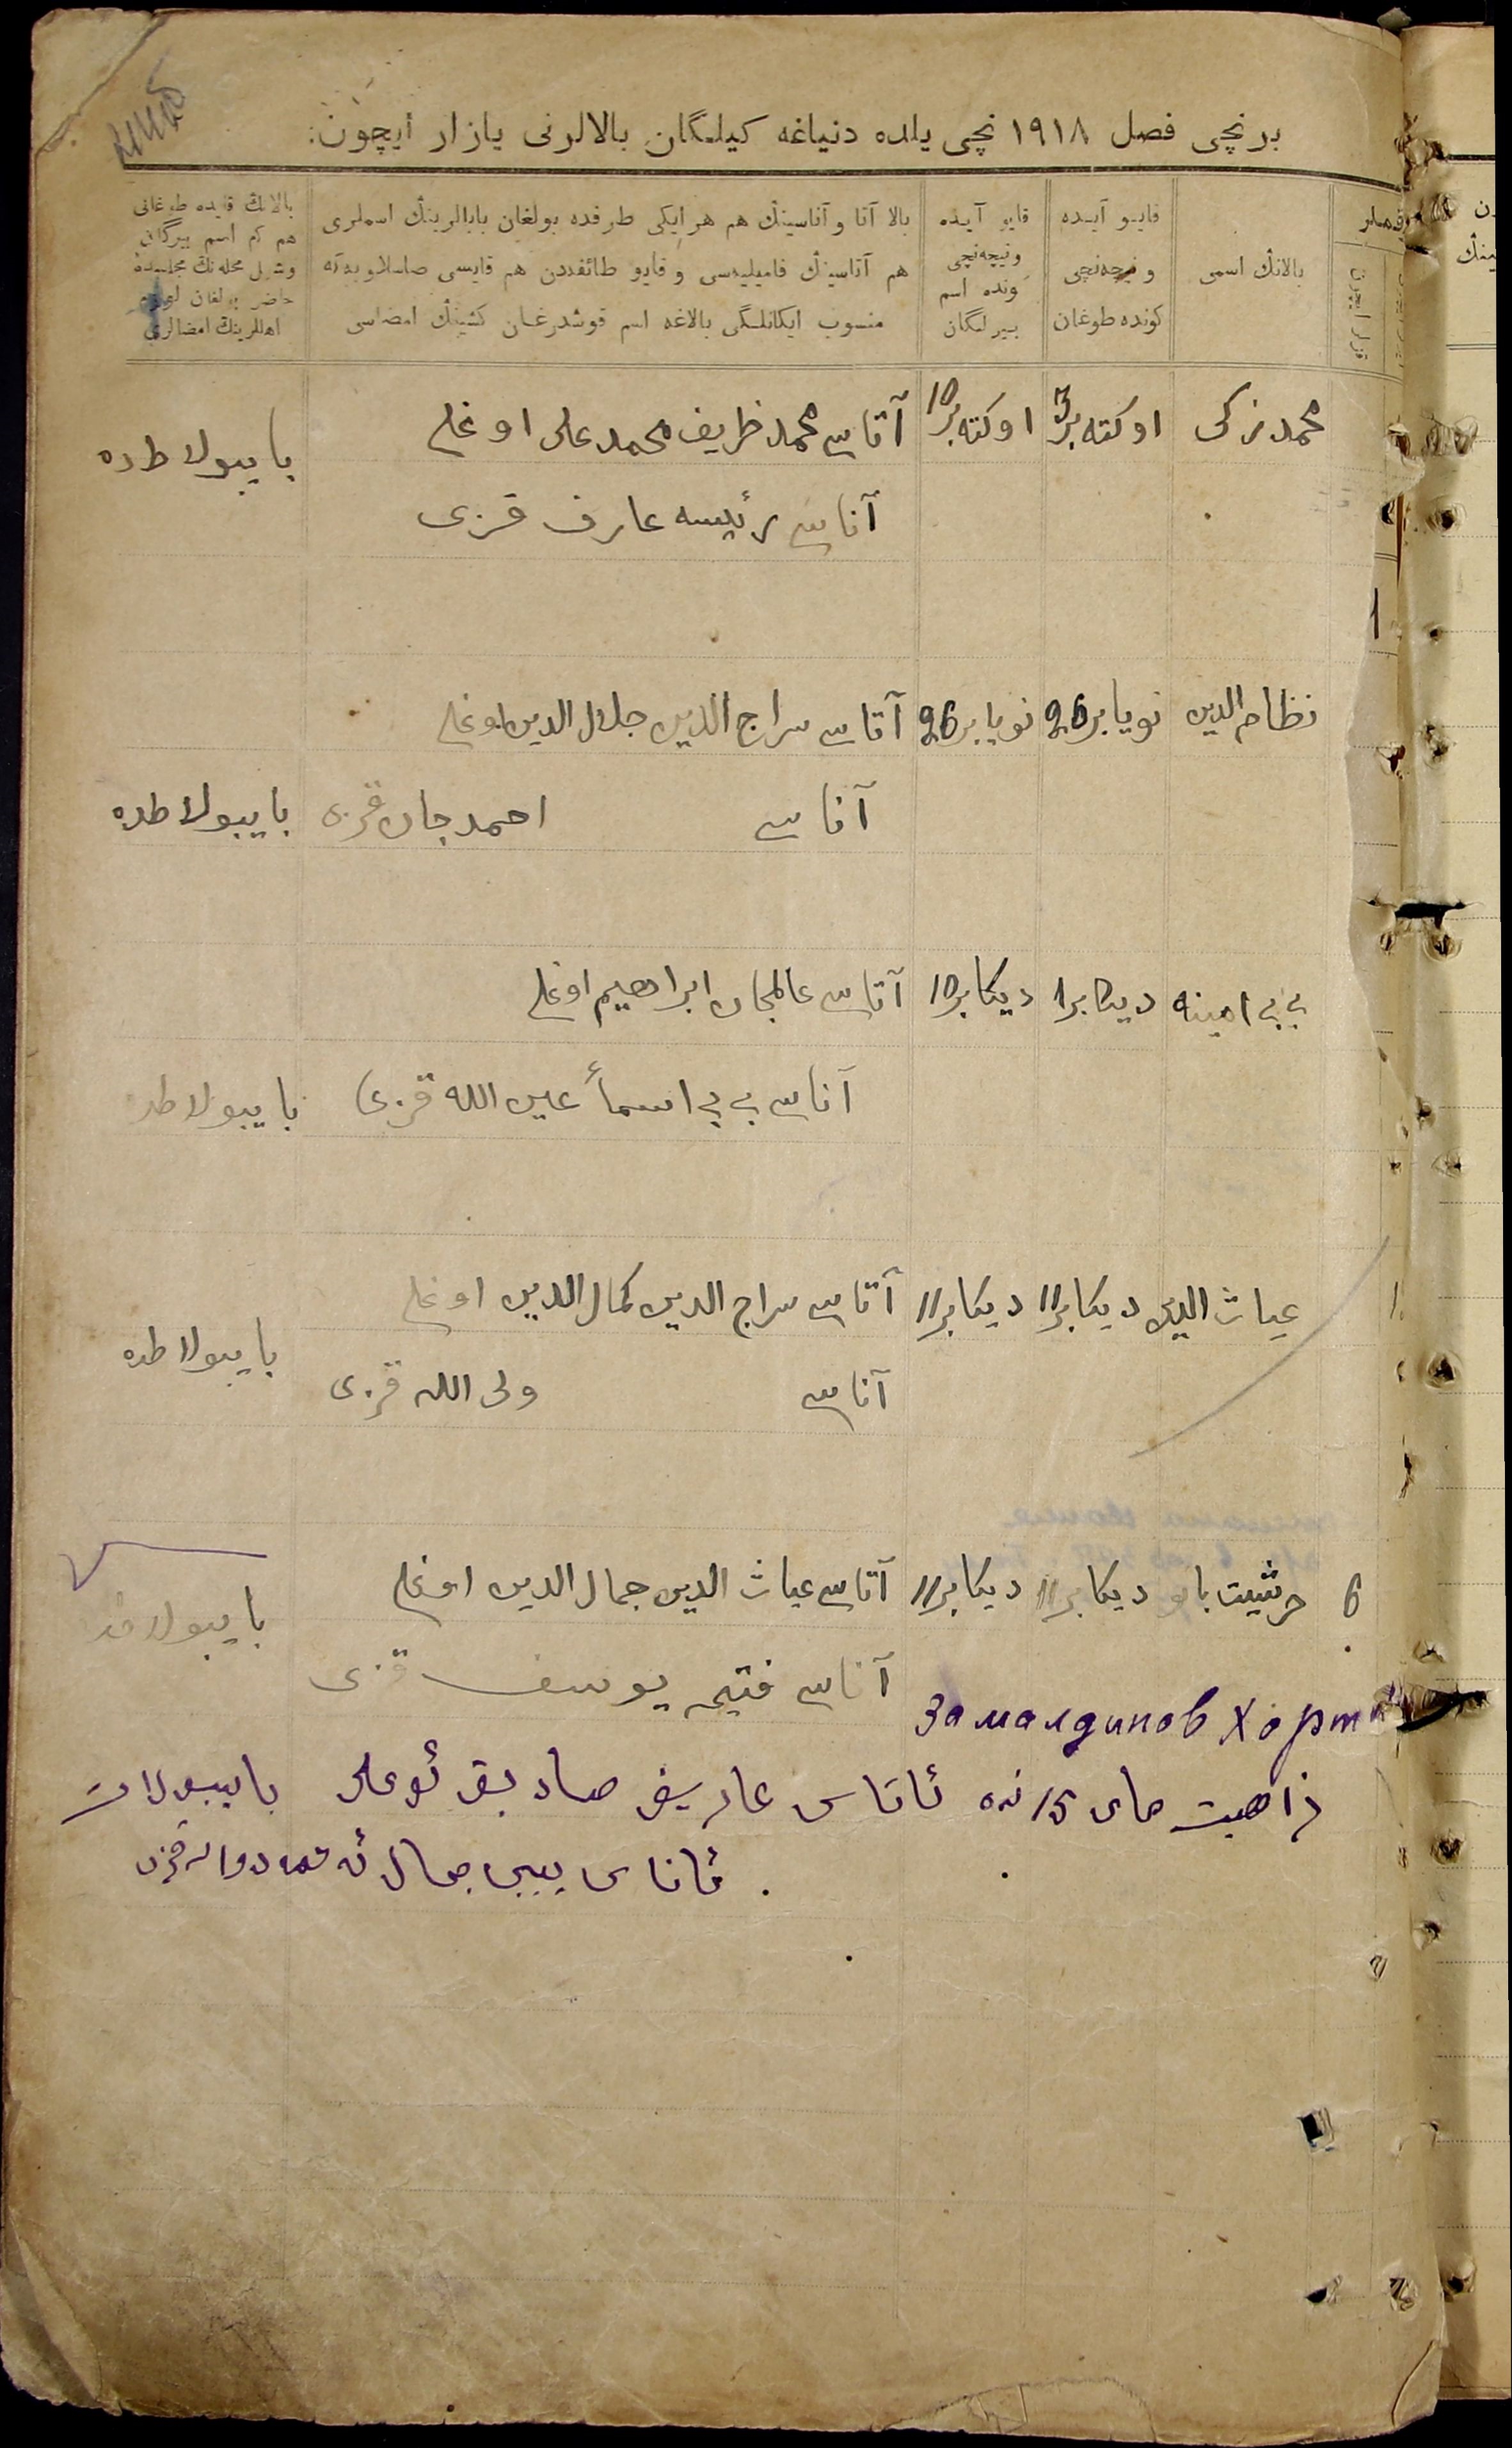 برنچی فصل ١٩١٨ نچی یلده دنیاغه کیلگان بالالرنی یازار ایچون:
بالانڭ اسمی
قایو آیده
و نیچه‌نچی
کونده طوغان
قایو آیده
و نیچه‌نچی
کونده اسم
بیرلگان
بالا آتا و آناسینڭ هم هر ایکی طرفده بولغان بابالرینڭ اسملری
هم آتاسینڭ فامیلیه‌سی و قایو طائفه‌دن هم قایسی
منسوب ایکانلگی بالاغه اسم قوشدرغان کشینڭ امضاسی
بالانڭ قایده طوغانی
هم کم اسم بیرگان
حاضر بولغان
اهللرینڭ امضالری
محمد زکی اوکته‌بر 3 اوکته‌بر 10 آتاسی محمد ظریف محمد علی اوغلی
بایبولاطده
آناسی رئیسه عارف قزی
1
نظام الدین نویابر 26 نویابر 26 آتاسی سراج الدین جلال الدین اوغلی
آناسی احمد جان قزی بایبولاطده
بی بی امینه دیکابر 1 دیکابر 10 آتاسی عالمجان ابراهیم اوغلی
آناسی بی بی اسمأ عین الله قزی بایبولاطده
غیاث الدین دیکابر 11 دیکابر 11 آتاسی سراج الدین کمال الدین اوغلی
بایبولاطده
آناسی ولی الله قزی
6 حرثیت بانو دیکابر 11 دیکابر 11 آتاسی غیاث الدین جمال الدین اوغلی
بایبولاطده
آناسی فتیحه یوسف قزی
Замалдинов Харт
زاهیت مای 15 نده ئاتاسی عاریف صادیق ئوغلی بایبولات
ئاناسی بیبی جمال قزی